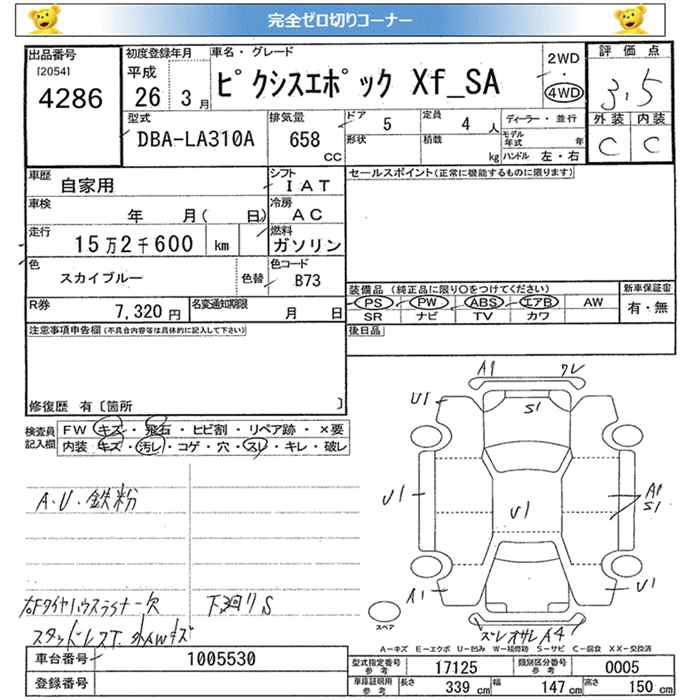 完全ゼロ切りコーナー
出品番号
[2054]
4286
初度登録年月
平成
26 3月
車名・グレード
ピクシスエポック Xf_SA
2WD
・
4WD
評価点
3.5
外装 内装
C C
型式
DBA-LA310A
排気量
658
CC
ドア 5
形状
定員 4 人
積載 kg
ディーラー・並行
モデル年式 年
ハンドル 左・右
車歴
自家用
シフト
IAT
車検
年 月( 日)
冷房
AC
走行
15万2千600 km
燃料
ガソリン
色
スカイブルー
色替
色コード
B73
R券
7,320円
名変通知期限
月 日
セールスポイント(正常に機能するものに限ります)
装備品 (純正品に限り○をつけてください)
PS PW ABS エアB AW
SR ナビ TV カワ
新車保証書
有・無
後日品
注意事項申告欄(不具合内容等は具体的に記入して下さい)
修復歴 有〔箇所 〕
検査員記入欄
FW キズ・飛石・ヒビ割・リペア跡・×要
内装 キズ・汚レ・コゲ・穴・スレ・キレ・破レ
A・U・鉄粉
右Fタイヤハウスライナー欠
下廻りS
スタッドレスT. 外AWキズ
A1
ワレ
U1
S1
U1
U1
A1
S1
A1
U1
ズレ オサレ A4
スペア
A−キズ E−エクボ U−凹み W−補修跡 S−サビ C−腐食 XX−交換済
車台番号
1005530
登録番号
型式指定番号
参考
17125
類別区分番号
参考
0005
車庫証明用
参考
長さ 339 cm
幅 147 cm
高さ 150 cm